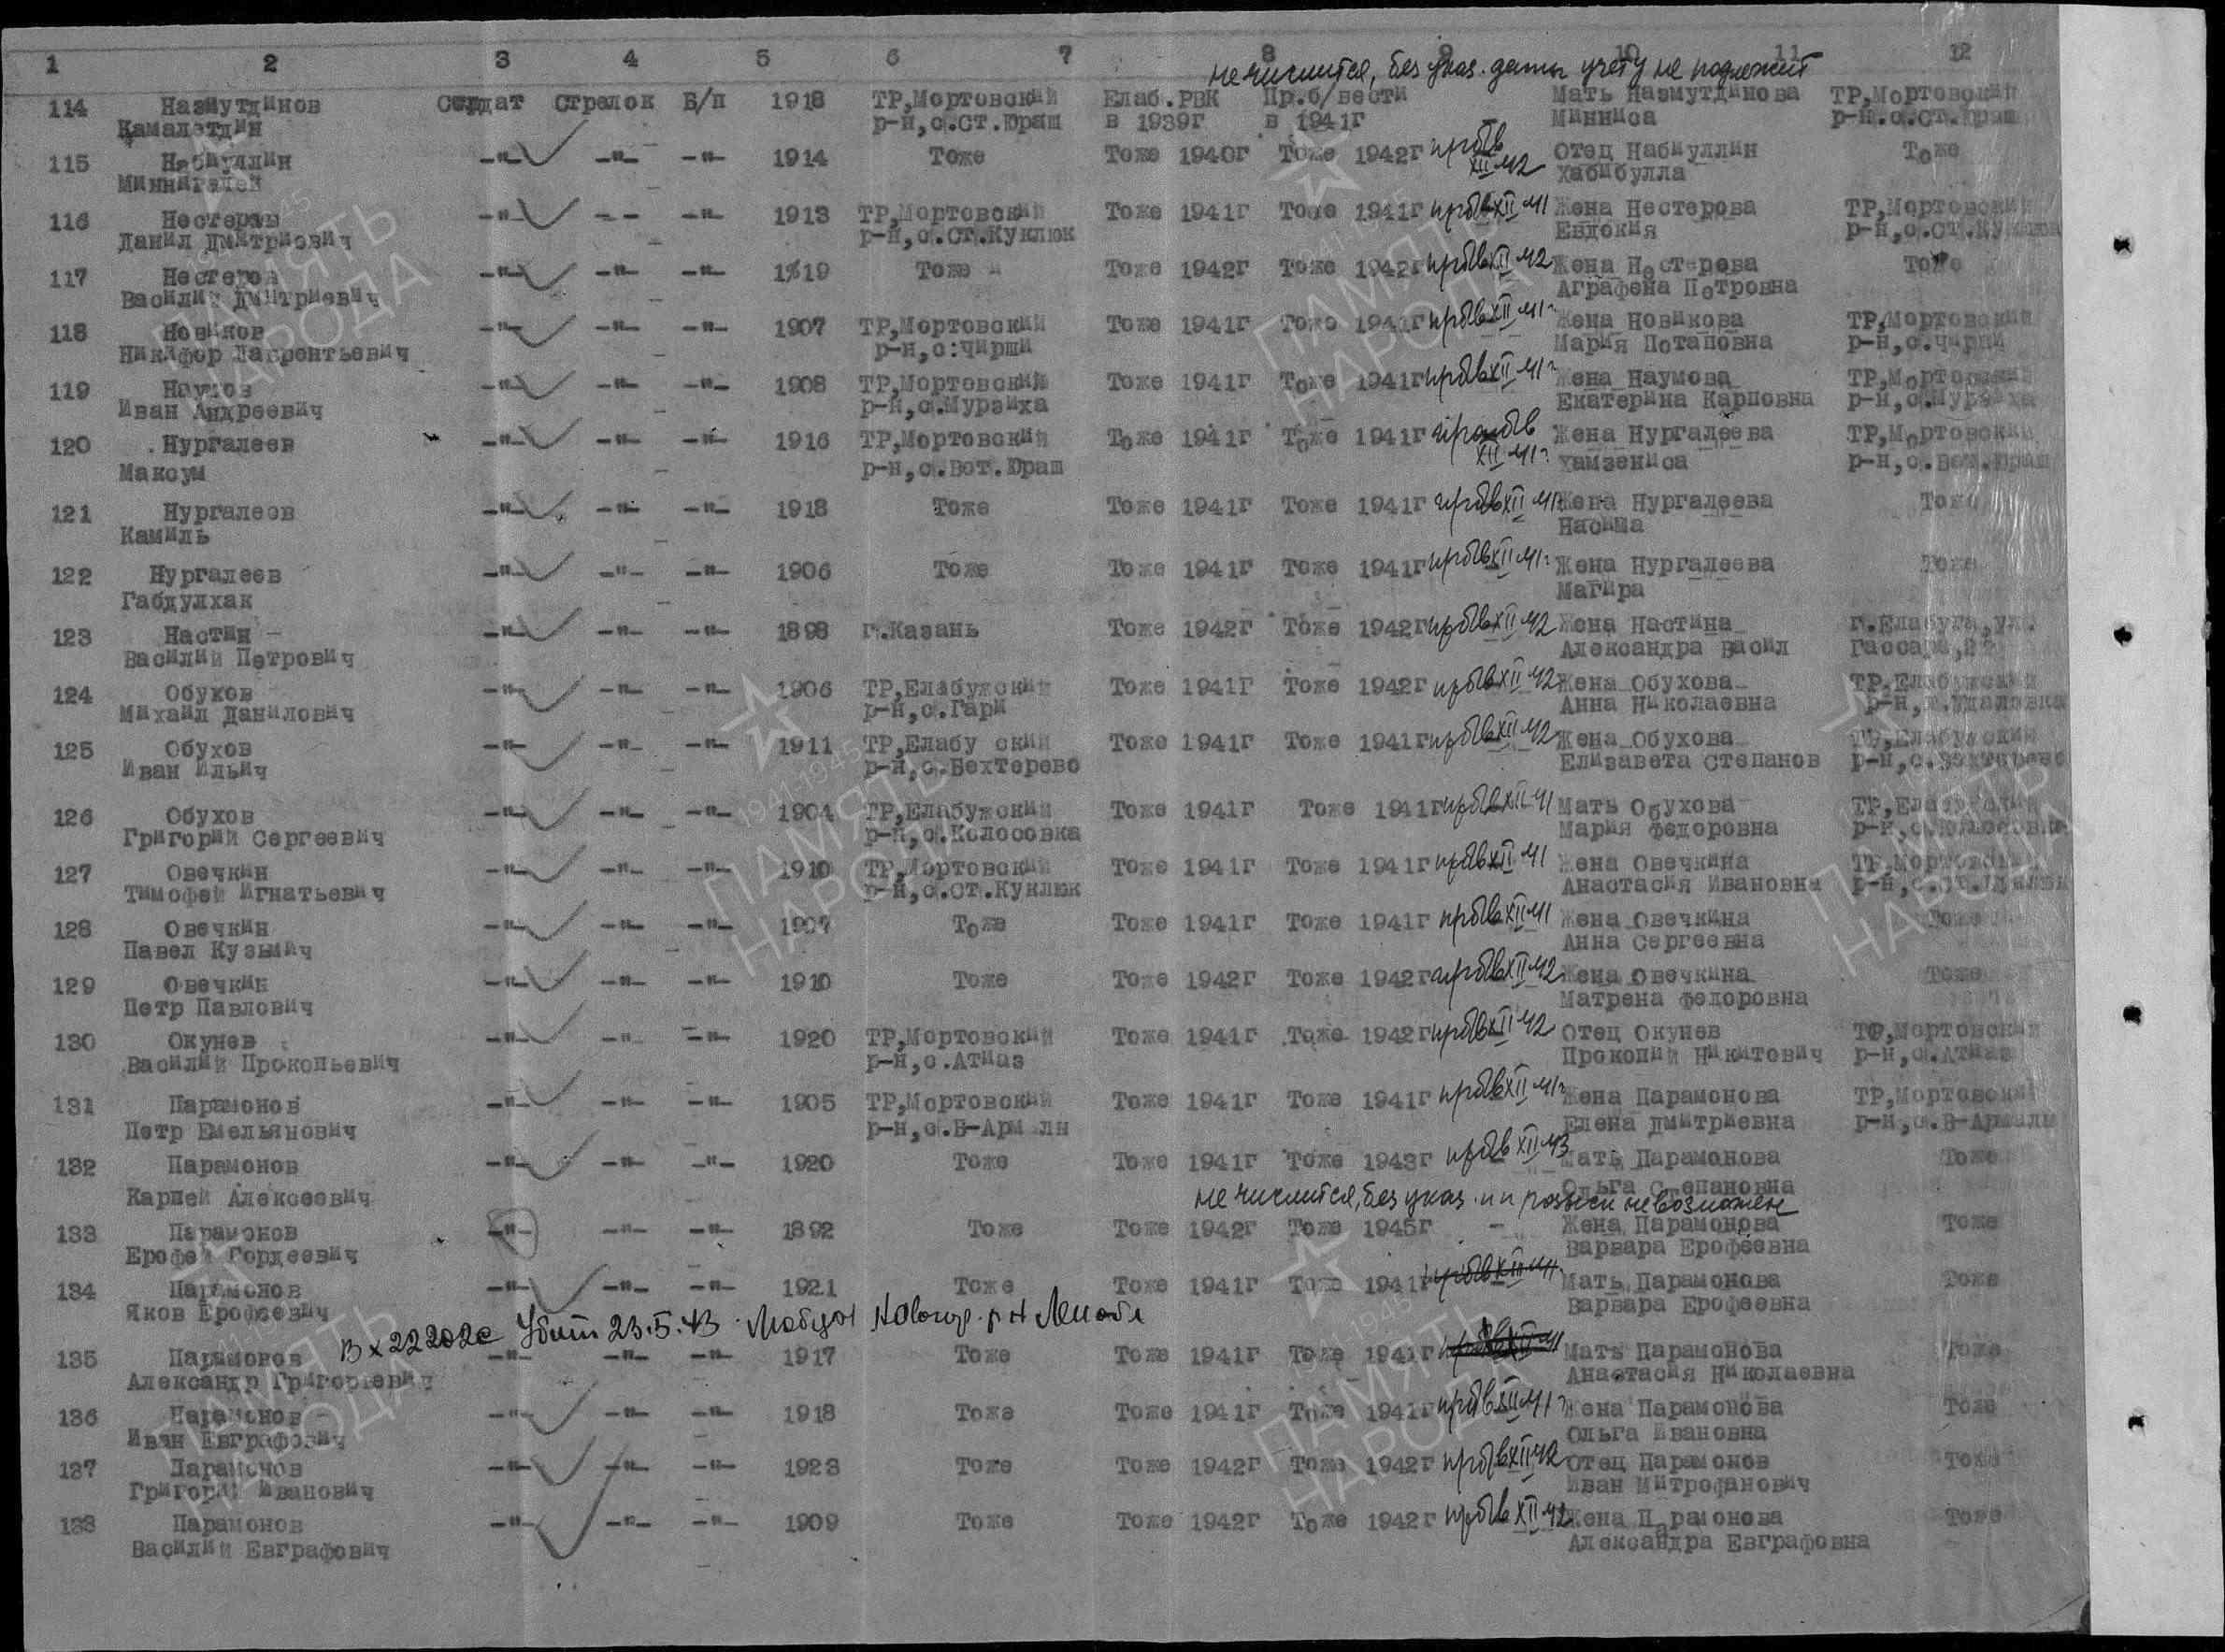 1 2 3 4 5 6 7 8 9 10 11 12
не числится, без указ. даты учету не подлежит
114 Назмутдинов Солдат Стрелок Б/п 1918 ТР,Мортовский Елаб.РВК Пр.б/вести Мать Назмутдинова ТР,Мортовский
Камалетдин р-н,с.Ст.Юраш в 1939г в 1941г Минниса р-н.с.Ст.Юраш
115 Набиуллин -"- -"- -"- 1914 Тоже Тоже 1940г Тоже 1942г пр б/в Отец Набиуллин Тоже
Миннигалей XII 42 Хабибулла
116 Нестеров -"- - - -"- 1913 ТР,Мортовский Тоже 1941г Тоже 1941г пр б/в XII 41 Жена Нестерова ТР,Мортовский
Данил Дмитриович р-н,с.Ст.Куклюк Евдокия р-н,с.Ст.Куклюк
117 Нестеров -"- -"- -"- 1919 Тоже Тоже 1942г Тоже 1942г пр б/в XII 42 Жена Нестерова Тоже
Василий Дмитриевич Аграфена Петровна
118 Новиков -"- -"- -"- 1907 ТР,Мортовский Тоже 1941г Тоже 1941г пр б/в XII 41г Жена Новикова ТР,Мортовский
Никифор Лаврентьевич р-н,с:Чирши Мария Потаповна р-н,с.Чирши
119 Наумов -"- -"- -"- 1908 ТР,Мортовский Тоже 1941г Тоже 1941г пр б/в XII 41г Жена Наумова ТР,Мортовский
Иван Андреевич р-н,с.Мурзиха Екатерина Карповна р-н,с.Мурзиха
120 Нургалеев -"- -"- -"- 1916 ТР,Мортовский Тоже 1941г Тоже 1941г проп б/в Жена Нургалеева ТР,Мортовский
Максум р-н,с.Вот.Юраш XII 41г Хамзениса р-н,с.Вот.Юраш
121 Нургалеов -"- -"- -"- 1918 Тоже Тоже 1941г Тоже 1941г пр б/в XII 41г Жена Нургалеева Тоже
Камиль Насима
122 Нургалеев -"- -"- -"- 1906 Тоже Тоже 1941г Тоже 1941г пр б/в XII 41г Жена Нургалеева Тоже
Габдулхак Магира
123 Настин -"- -"- -"- 1898 г.Казань Тоже 1942г Тоже 1942г пр б/в XII 42 Жена Настина г.Елабуга,ул.
Василий Петрович Александра Васил Гассара,
124 Обухов -"- -"- -"- 1906 ТР,Елабужский Тоже 1941г Тоже 1942г пр б/в XII 42 Жена Обухова ТР,Елабужский
Михаил Данилович р-н,с.Гари Анна Николаевна р-н,
125 Обухов -"- -"- -"- 1911 ТР,Елабу ский Тоже 1941г Тоже 1941г пр б/в XII 42 Жена Обухова ТР,Елабужский
Иван Ильич р-н,с.Бехтерево Елизавета Степанов р-н,с.Бехтерево
126 Обухов -"- -"- -"- 1904 ТР,Елабужский Тоже 1941г Тоже 1941г пр б/в XII 41 Мать Обухова ТР,Елабужский
Григорий Сергеевич р-н,с.Колосовка Мария Федоровна р-н,с.Колосовка
127 Овечкин -"- -"- -"- 1910 ТР,Мортовский Тоже 1941г Тоже 1941г пр б/в XII 41 Жена Овечкина ТР,Мортовский
Тимофей Игнатьевич р-н,с.Ст.Куклюк Анастасия Ивановна р-н,с.Ст.Куклюк
128 Овечкин -"- -"- -"- 1907 Тоже Тоже 1941г Тоже 1941г пр б/в XII 41 Жена Овечкина Тоже
Павел Кузьмич Анна Сергеевна
129 Овечкин -"- -"- -"- 1910 Тоже Тоже 1942г Тоже 1942г пр б/в XII 42 Жена Овечкина Тоже
Петр Павлович Матрена Федоровна
130 Окунев -"- -"- -"- 1920 ТР,Мортовский Тоже 1941г Тоже 1942г пр б/в XII 42 Отец Окунев ТР,Мортовский
Василий Прокопьевич р-н,с.Атиаз Прокопий Никитович р-н,с.Атиаз
131 Парамонов -"- -"- -"- 1905 ТР,Мортовский Тоже 1941г Тоже 1941г пр б/в XII 41г Жена Парамонова ТР,Мортовский
Петр Емельянович р-н,с.В-Арм лы Елена Дмитриевна р-н,с.В-Армалы
132 Парамонов -"- -"- -"- 1920 Тоже Тоже 1941г Тоже 1943г пр б/в XII 43 Мать Парамонова Тоже
Карпей Алексеевич Ольга Степановна
не числится, без указ. п п розыск невозможен
133 Парамонов -"- -"- -"- 1892 Тоже Тоже 1942г Тоже 1945г - Жена Парамонова Тоже
Ерофей Гордеевич Варвара Ерофеевна
134 Парамонов -"- -"- -"- 1921 Тоже Тоже 1941г Тоже 1941г пр б/в XII 41 Мать Парамонова Тоже
Яков Ерофеевич Варвара Ерофеевна
Вх 22202с Убит 23.5.43 р н Лен обл
135 Парамонов -"- -"- -"- 1917 Тоже Тоже 1941г Тоже 1941г пр б/в XII 41 Мать Парамонова Тоже
Александр Григорьевич Анастасия Николаевна
136 Парамонов -"- -"- -"- 1918 Тоже Тоже 1941г Тоже 1941г пр б/в XII 41г Жена Парамонова Тоже
Иван Евграфович Ольга Ивановна
137 Парамонов -"- -"- -"- 1923 Тоже Тоже 1942г Тоже 1942г пр б/в XII 42 Отец Парамонов Тоже
Григорий Иванович Иван Митрофанович
138 Парамонов -"- -"- -"- 1909 Тоже Тоже 1942г Тоже 1942г пр б/в XII 42 Жена Парамонова Тоже
Василий Евграфович Александра Евграфовна